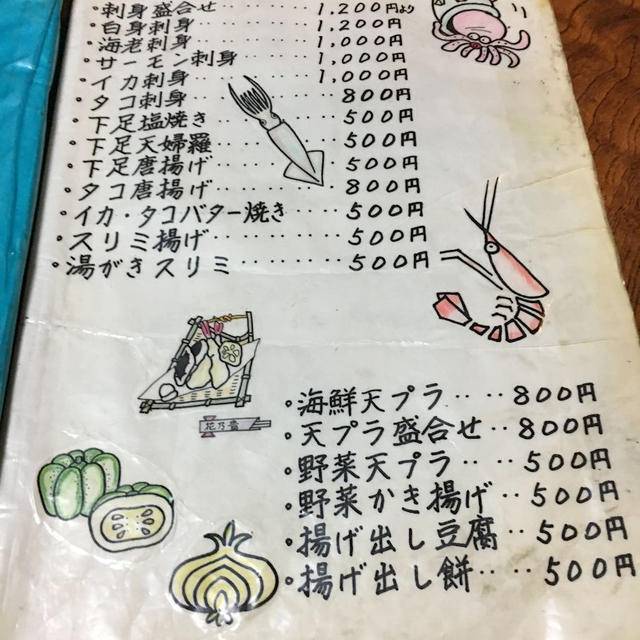 ・刺身盛合せ‥‥‥1,200円より
・白身刺身‥‥‥‥1,200円
・海老刺身‥‥‥‥1,000円
・サーモン刺身‥‥1,000円
・イカ刺身‥‥‥‥1,000円
・タコ刺身‥‥‥‥800円
・下足塩焼き‥‥‥500円
・下足天婦羅‥‥‥500円
・下足唐揚げ‥‥‥500円
・タコ唐揚げ‥‥‥800円
・イカ・タコバター焼き‥‥500円
・スリミ揚げ‥‥‥500円
・湯がきスリミ‥‥500円
・海鮮天プラ‥‥800円
・天プラ盛合せ‥800円
・野菜天プラ‥‥500円
・野菜かき揚げ‥500円
・揚げ出し豆腐‥500円
・揚げ出し餅‥‥500円